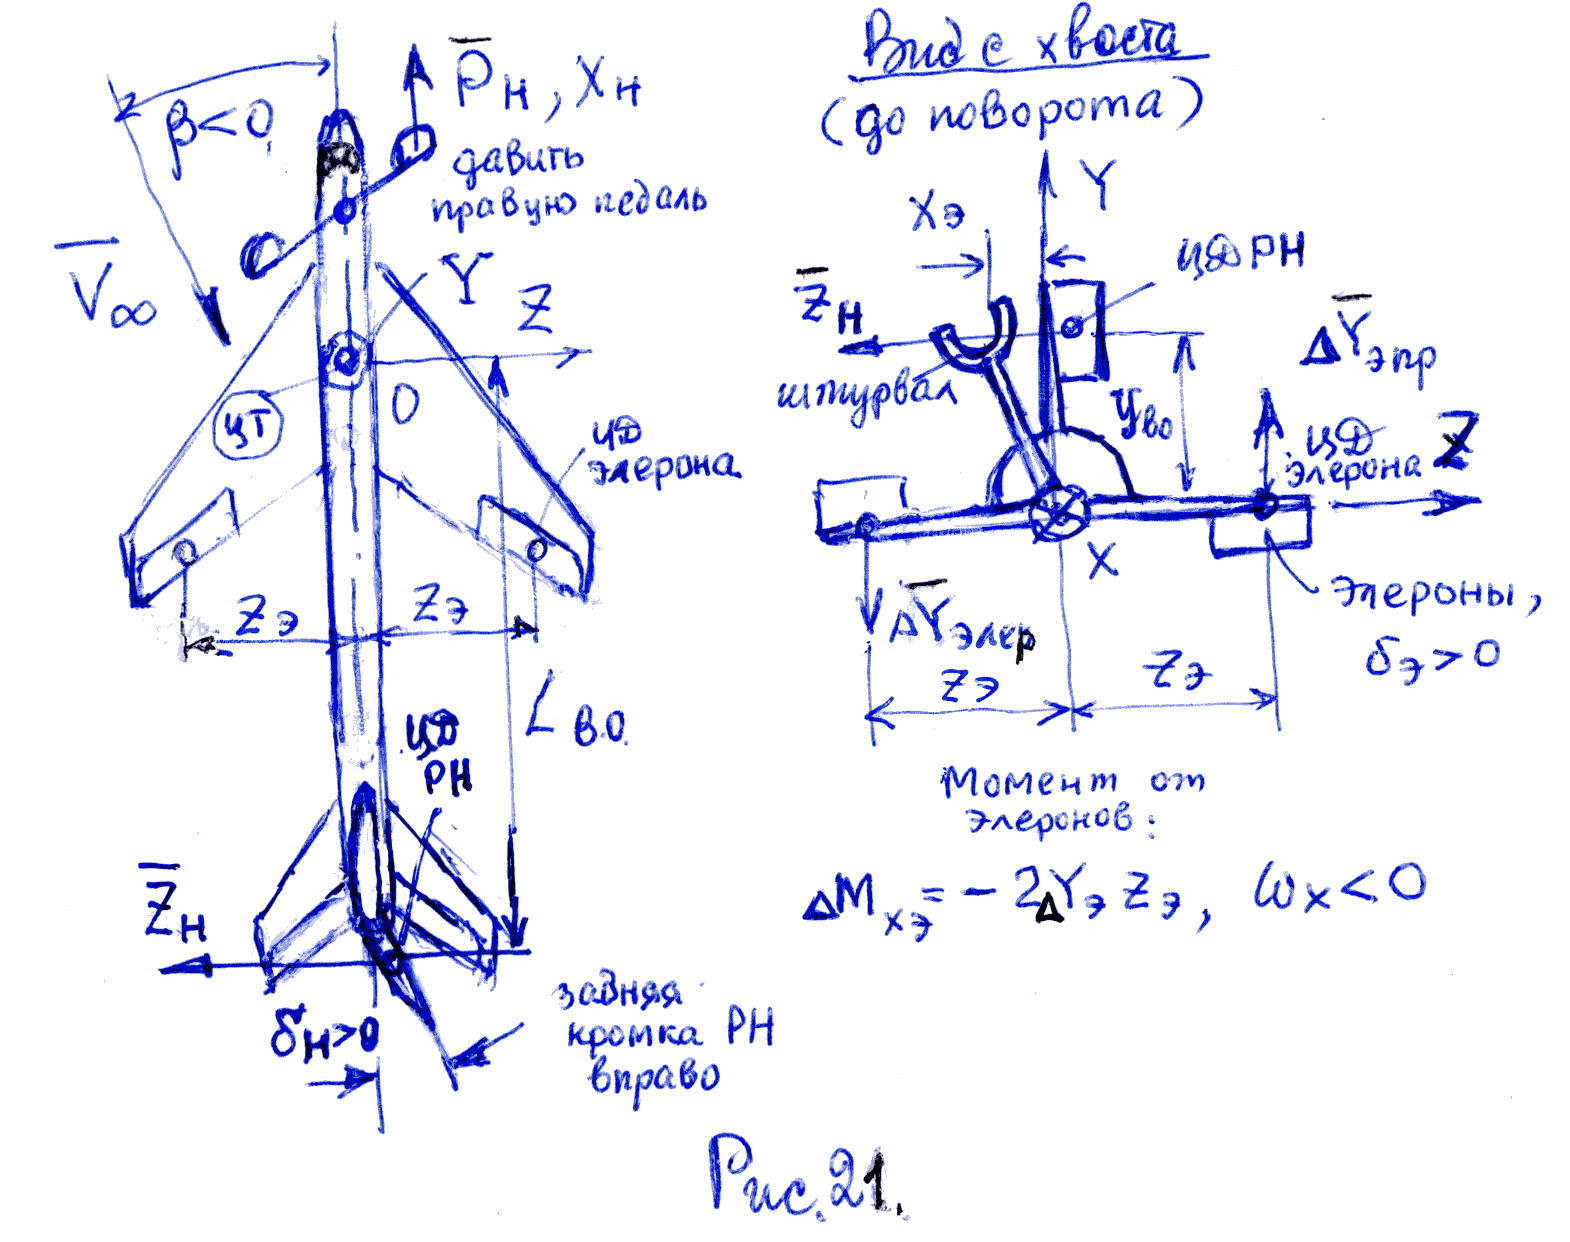 β<0
P̅н, Xн
давить
правую педаль
V̅∞
Y
Z
0
ЦТ
ЦД
элерона
Zэ
Zэ
Lв.о.
ЦД
РН
Z̅н
δн>0
задняя
кромка РН
вправо
Вид с хвоста
(до поворота)
Y
Xэ
ЦД РН
Z̅н
штурвал
yво
ΔY̅э пр
ЦД
элерона
Z
X
ΔY̅э лер
элероны,
δэ>0
Zэ
Zэ
Момент от
элеронов:
ΔMxэ = -2ΔYэ Zэ, ωx<0
Рис.21.